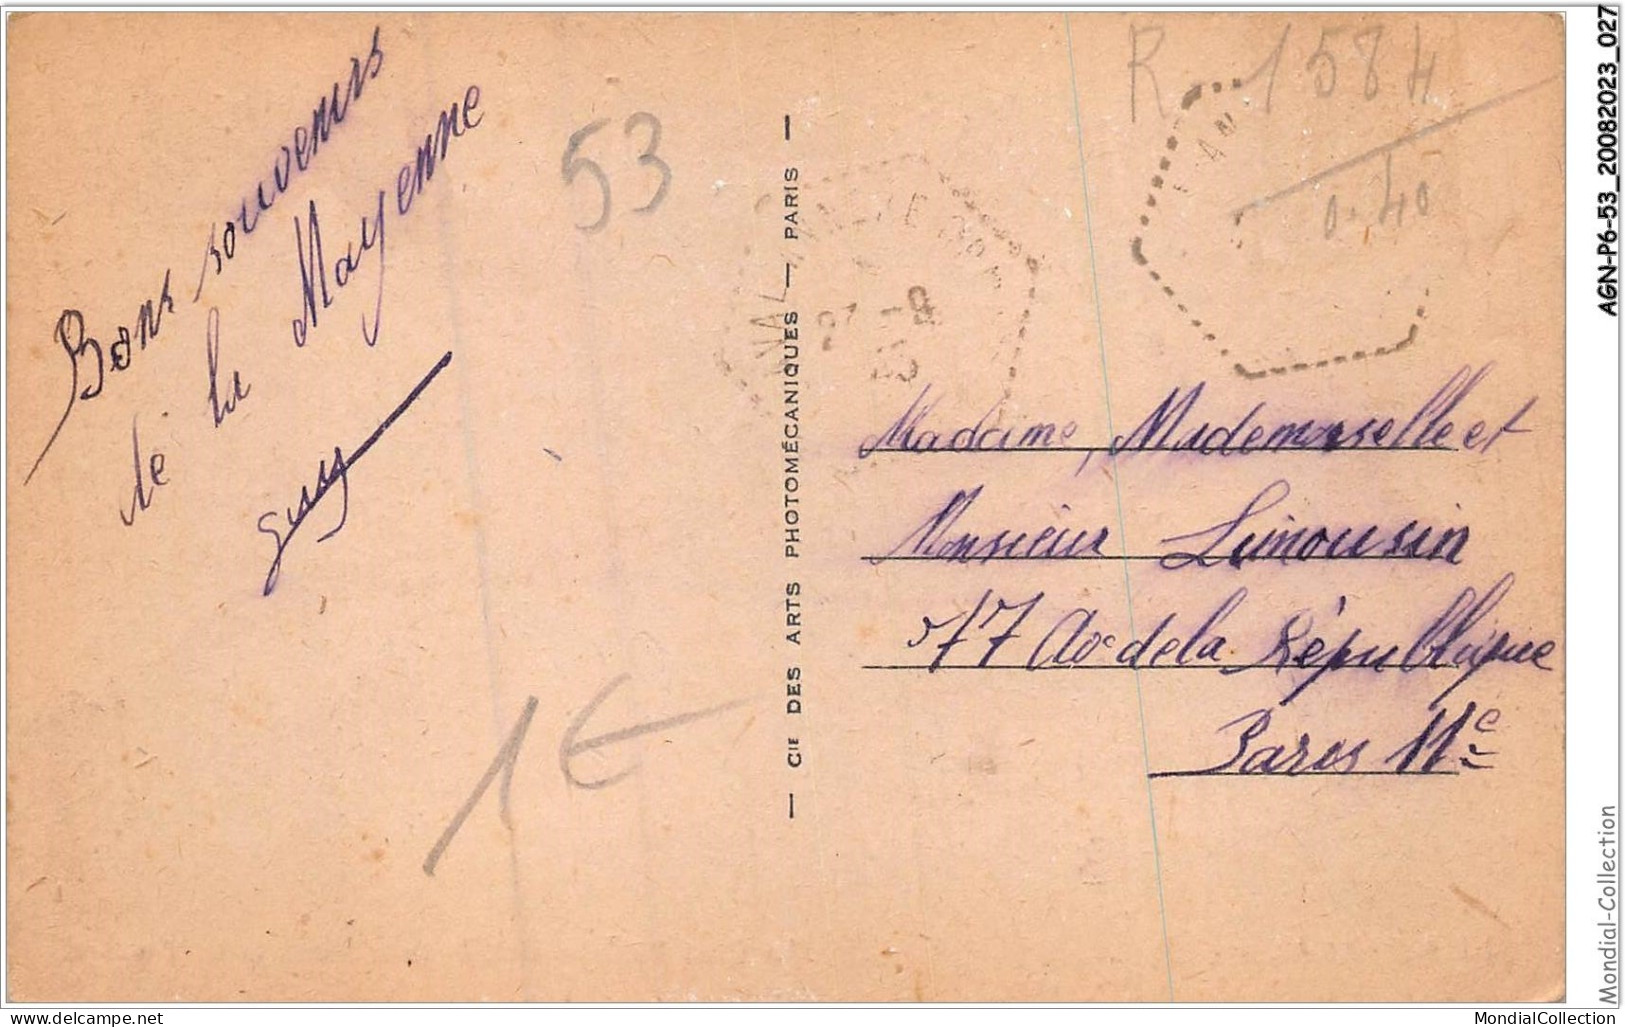 Bons souvenirs
de la Mayenne
53
1€
— CIE DES ARTS PHOTOMÉCANIQUES — PARIS —
R 1584
0.40
Madame, Mademoiselle et
Monsieur Limousin
77 Av de la République
Paris 11e
AGN-P6-53_20082023_027
Mondial-Collection
www.delcampe.net
MondialCollection